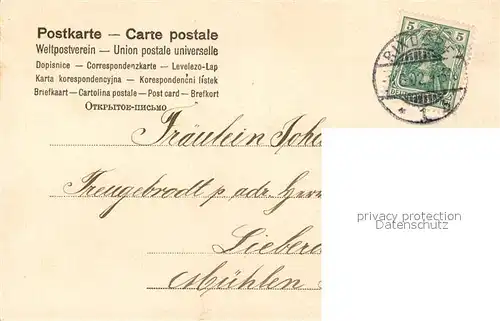 Postkarte — Carte postale
Weltpostverein — Union postale universelle
Dopisnice — Correspondenzkarte — Levelezo-Lap
Karta korespondencyjna — Korespondenční lístek
Briefkaart — Cartolina postale — Post card — Brefkort
Открытое-письмо
5 5
Fräulein Johe
Treugebrodt p adr. Herr
privacy protection
Datenschutz
Mühlen